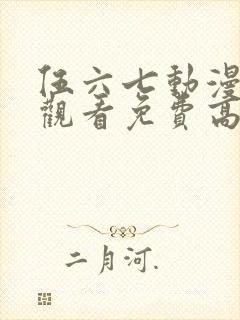 伍六七動漫
觀看免費高
二月河.